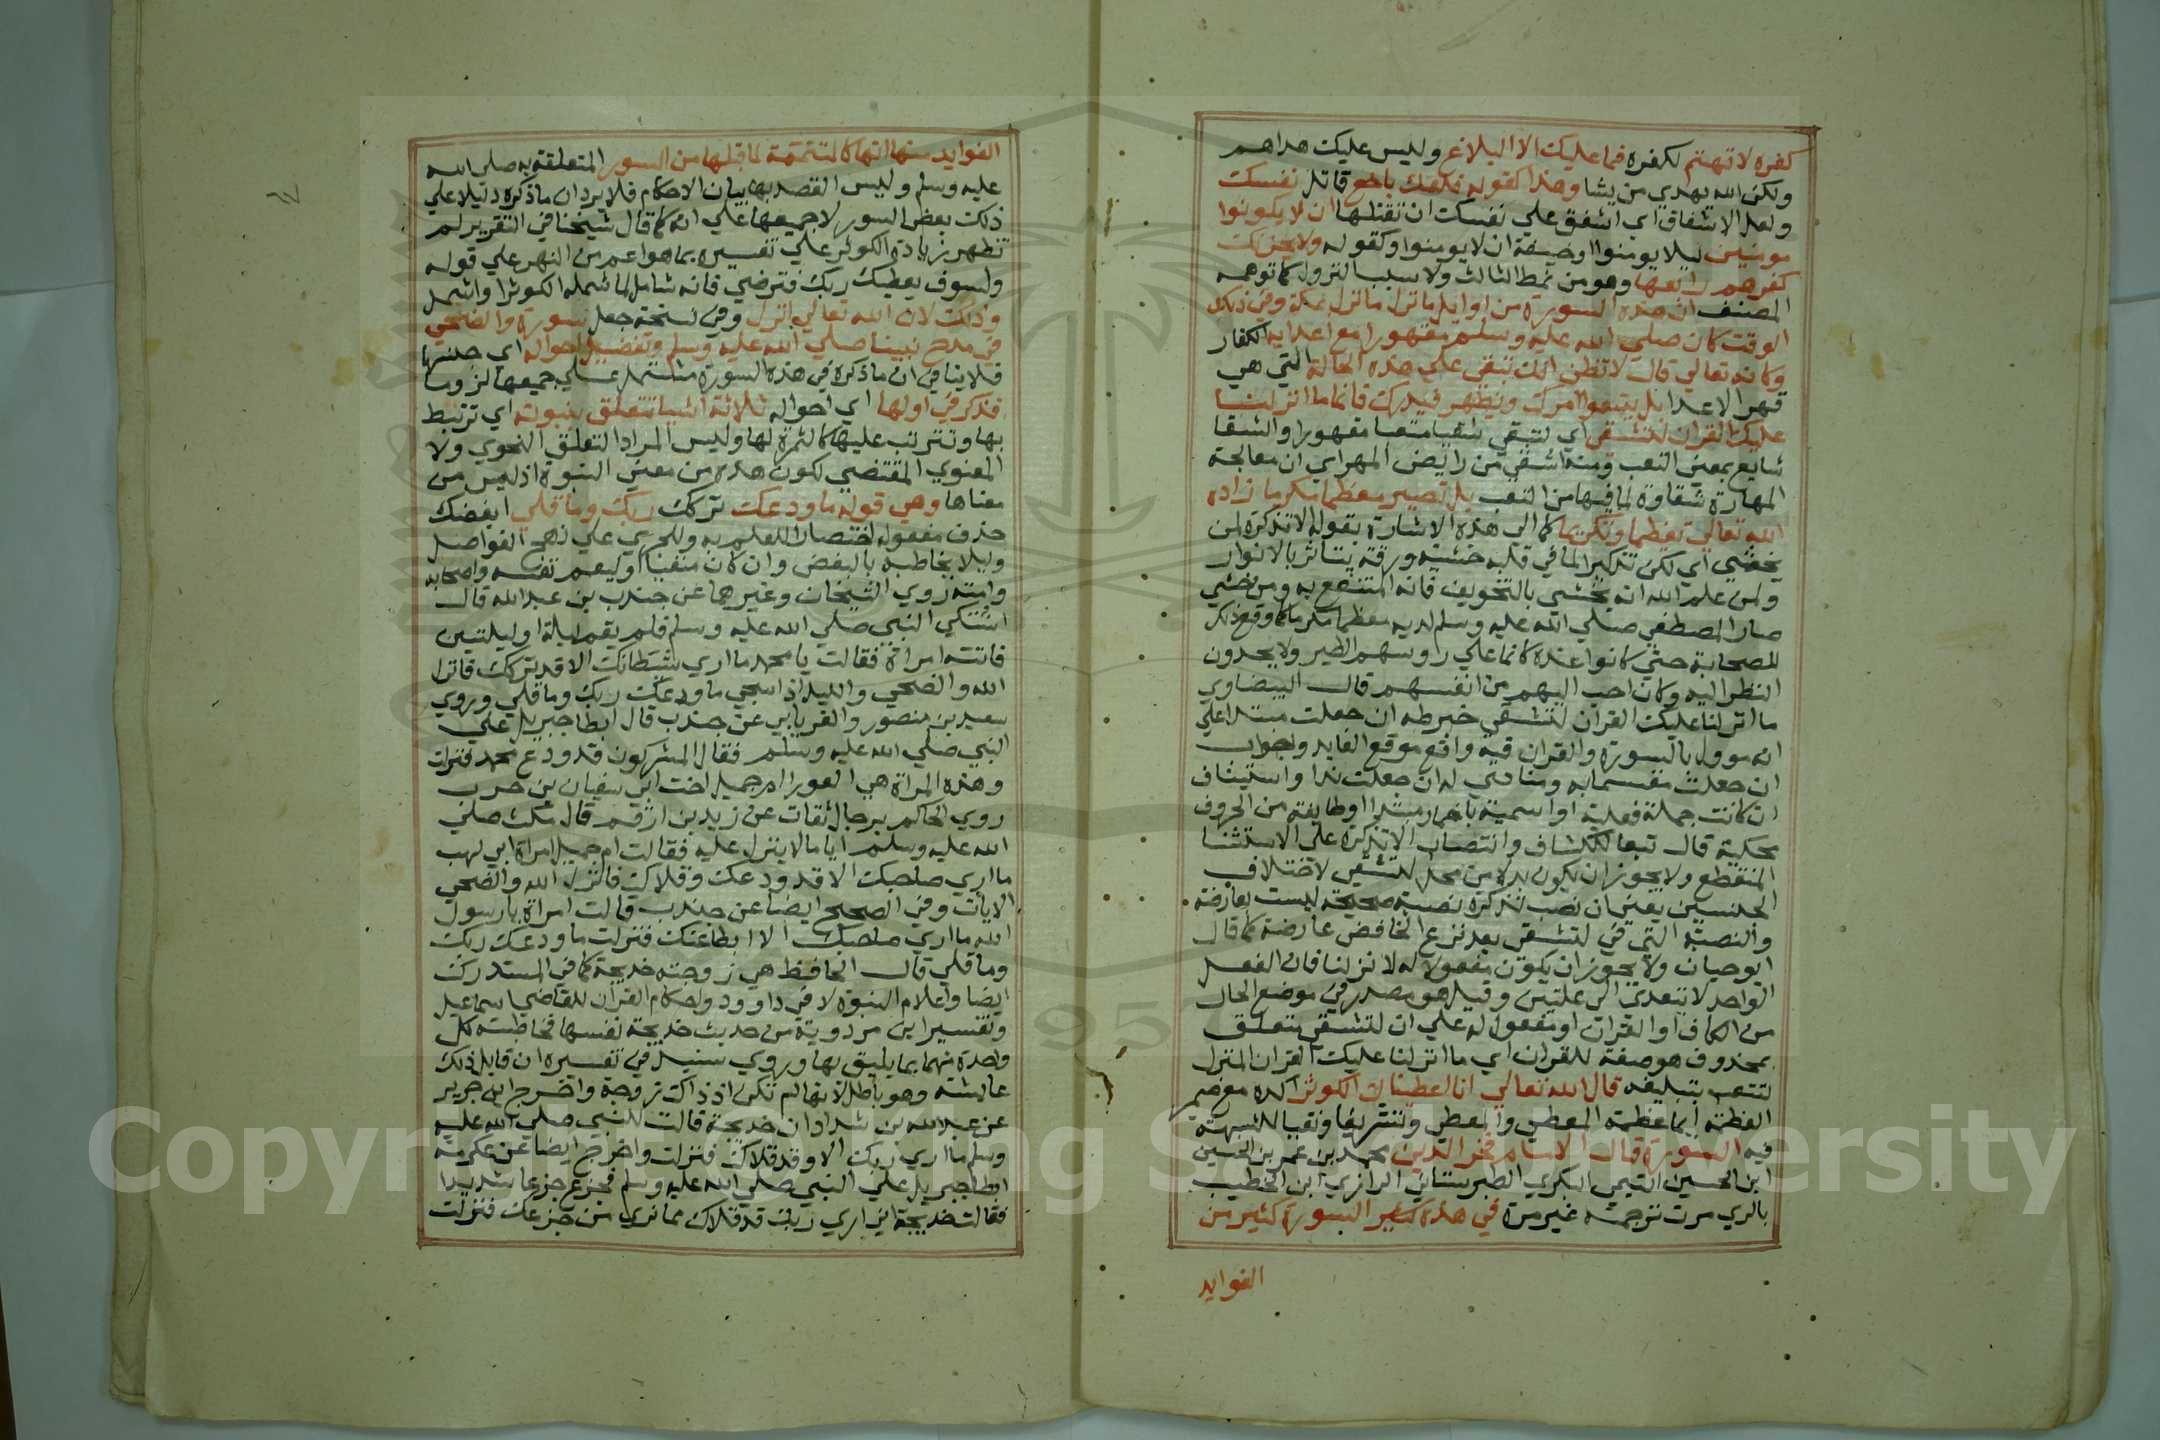 كفره لا تهتم لكفره فما عليك الا البلاغ وليس عليك هداهم
ولكن الله يهدي من يشا وهذا كقوله فلعلك باخع قاتل نفسك
ولعل الاشفاق اي اشفق علي نفسك ان تقتلها ان لا يكونوا
مومنين ليلا يومنوا اوخيفة ان لا يومنوا وكقوله ولا يحزنك
كفرهم رابعها وهو من نمط الثالث ولا سببا لنزول كما توهمه
المصنف ان هذه السورة من اوايل ما نزل ما نزل بمكة وفي ذلك
الوقت كان صلي الله عليه وسلم مقهورا مع اعدايه الكفار
وكانه تعالي قال لا تظن انك تبقي علي هذه الحالة التي هي
قهر الاعدا بل يعلوا امرك ويظهر قدرك فانا ما انزلنا
عليك القران لتشقي اي لتبقي شقيا متعبا مقهورا والشقا
شايع بمعني التعب ومنه اشقي من رايض المهر اي ان معالجة
المهارة شقاوة لما فيها من التعب بل تصير معظما مكرما زاده
الله تعالي تعظيما وتكريما كما الي هذه الاشارة بقوله الا تذكرة لمن
يخشي اي لكن تذكيرا لما في قلبه خشية ورقة يتاثر بالانوار
ولمن علم الله انه يخشي بالتخويف فانه المنتفع به ومن خشي
صار المصطفي صلي الله عليه وسلم لديه معظما مكرما كما وقع ذلك
للصحابة حتي كانوا عنده كانما علي رؤسهم الطير ولا يحدون
النظر اليه وكان احب اليهم من انفسهم قال البيضاوي
ما انزلنا عليك القران لتشقي خبر طه ان جعلت مبتدا علي
انه موول بالسورة والقران فيه واقع موقع العايد وجواب
ان جعلت مقسما به ومنادي له ان جعلت ندا واستيناف
ان كانت جملة فعلية او اسمية باضمار مبتدا او طايفة من الحروف
محكية قال تبعا للكشاف وانتصاب الا تذكرة علي الاستثنا
المنقطع ولا يجوز ان يكون بدلا من محل لتشقي لاختلاف
الجنسين يعني ان نصب تذكرة نصبة صحيحة ليست بعارضة
والنصبة التي في لتشقي بعد نزع الخافض عارضة كما قال
ابو حيان ولا يجوز ان يكون مفعولا له لا نزلنا فان الفعل
الواحد لا يتعدي الي علتين وقيل هو مصدر في موضع الحال
من الكاف او القران او مفعول له علي ان لتشقي متعلق
بمحذوف هو صفة للقران اي ما انزلنا عليك القران المنزل
لتتعب بتبليغه قال الله تعالي انا اعطيناك الكوثر اكده مع ضمير
العظمة ايما لعظمة المعطي والمعطي وتشريفا ونفيا للشبهة
فيه السورة قال الامام فخر الدين محمد بن عمر بن الحسين
ابن الحسين التيمي البكري الطبرستاني الرازي ابن الخطيب
بالري مرت ترجمته غير مرة في هذه السورة كثير من
الفوايد
الفوايد منها انها كالتتمة لما قبلها من السور المتعلقة به صلي الله
عليه وسلم وليس القصد بها بيان الاحكام فلا يرد ان ما ذكره دليلا علي
ذلك بعض السور لا جميعها علي انه كما قال شيخنا في التقرير لم
تظهر زيادة الكوثر علي تفسيره بما هو اعم من النهر علي قوله
ولسوف يعطيك ربك فترضي فانه شامل لما شمله الكوثر او اشمل
وذلك لان الله تعالي انزل وفي نسخة جعل سورة والضحي
في مدح نبينا صلي الله عليه وسلم وتفضيل احواله اي جنسها
فلا ينافي ان ما ذكره في هذه السورة مشتمل علي جميعها لزوما
فذكر في اولها اي احواله ثلاثة اشيا تتعلق بنبوته اي ترتبط
بها وتترتب عليها كالثمرة لها وليس المراد التعلق النحوي ولا
المعنوي المقتضي لكون هذه من معني النبوة اذ ليس من
معناها وهي قوله ما ودعك تركك ربك وما قلي ابغضك
حذف مفعوله اختصارا للعلم به وللجري علي نهج الفواصل
وليلا يخاطبه بالبغض وان كان منفيا او ليعم نفسه واصحابه
وامته روي الشيخان وغيرهما عن جندب بن عبد الله قال
اشتكي النبي صلي الله عليه وسلم فلم يقم ليلة او ليلتين
فاتته امراة فقالت يا محمد ما اري شيطانك الا قد تركك فانزل
الله والضحي والليل اذا سجي ما ودعك ربك وما قلي وروي
سعيد بن منصور والفريابي عن جندب قال ابطا جبريل علي
النبي صلي الله عليه وسلم فقال المشركون قد ودع محمد فنزلت
وهذه المراة هي العورا ام جميل اخت ابي سفيان بن حرب
روي الحاكم برجال ثقات عن زيد بن ارقم قال مكث صلي
الله عليه وسلم اياما لا ينزل عليه فقالت ام جميل امراة ابي لهب
ما اري صاحبك الا قد ودعك وقلاك فانزل الله والضحي
الايات وفي الصحيح ايضا عن جندب قالت امراة يا رسول
الله ما اري صاحبك الا ابطا عنك فنزلت ما ودعك ربك
وما قلي قال الحافظ هي زوجته خديجة كما في المستدرك
ايضا واعلام النبوة لابي داوود واحكام القران للقاضي اسماعيل
وتفسير ابن مردوية من حديث خديجة نفسها فخاطبته كل
واحدة منهما بما يليق بها وروي سنيد في تفسيره ان قايل ذلك
عايشة وهو باطل لانها لم تكن اذ ذاك زوجة واخرج ابن جرير
عن عبد الله بن شداد ان خديجة قالت للنبي صلي الله عليه
وسلم ما اري ربك الا وقد قلاك فنزلت واخرج ايضا عن عكرمة
ابطا جبريل علي النبي صلي الله عليه وسلم فجزع جزعا شديدا
فقالت خديجة اني اري ربك قد قلاك مما نري من جزعك فنزلت
Copyright © King Saud University